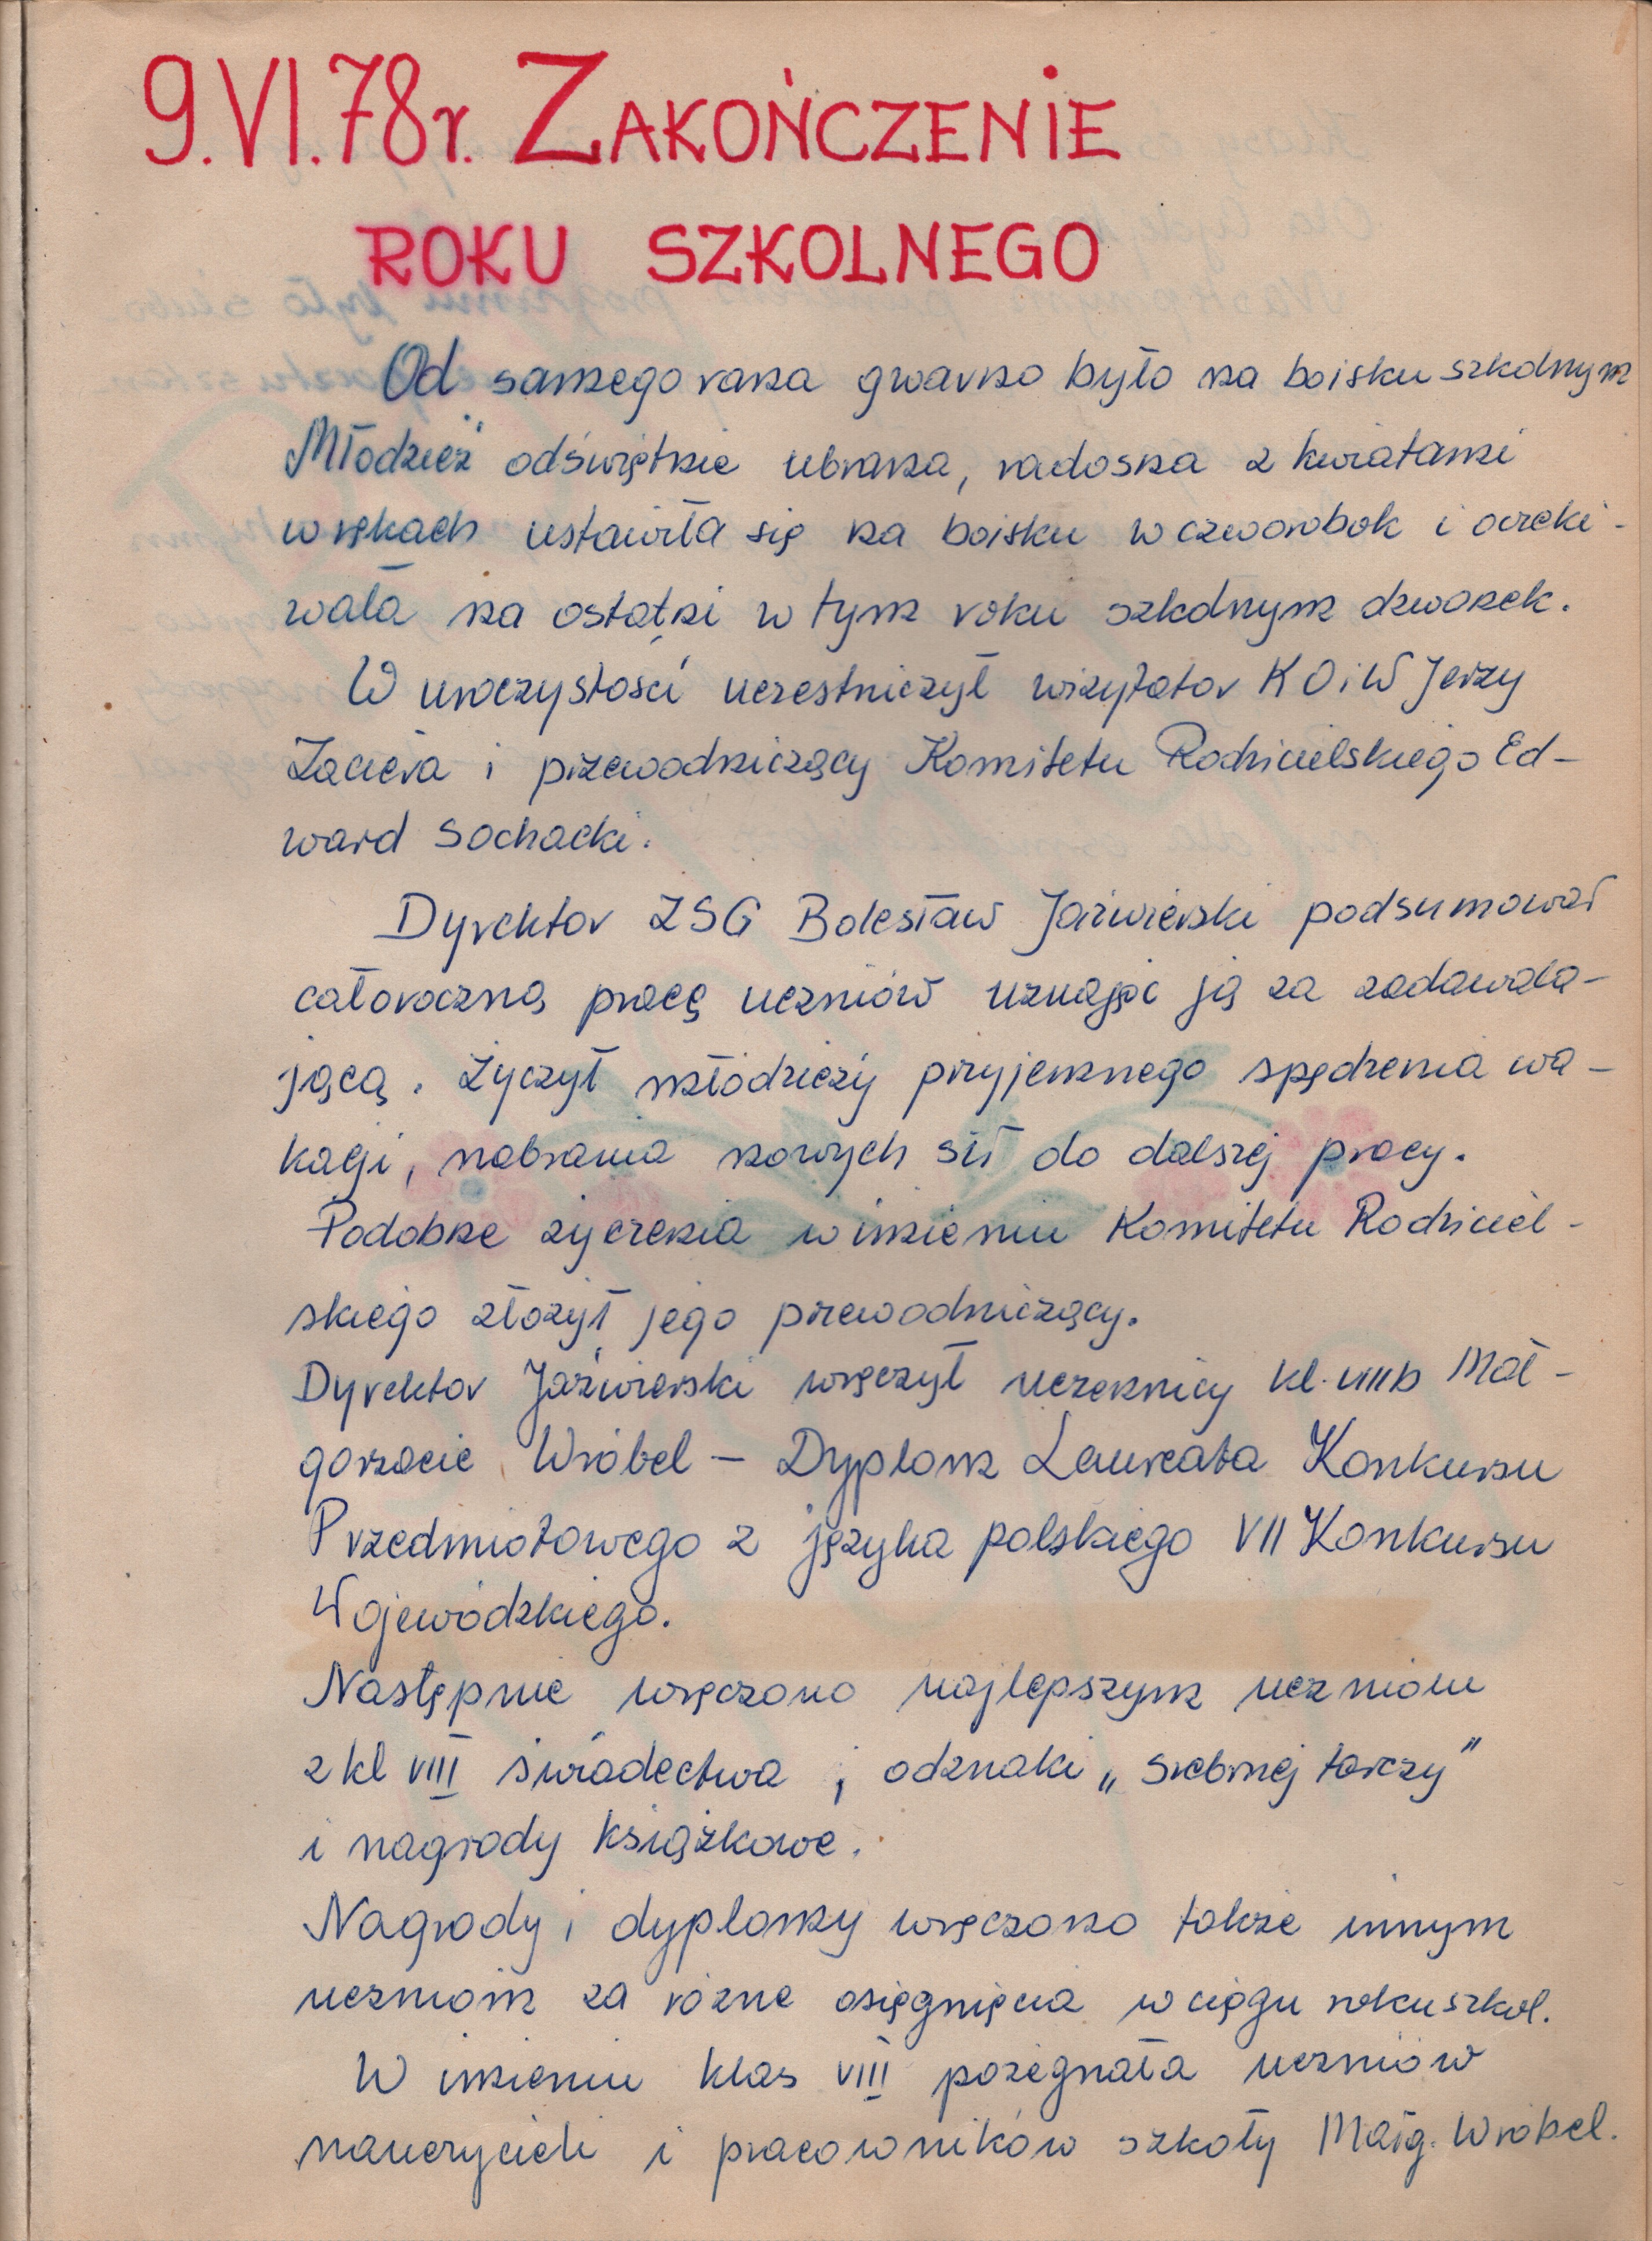 9.VI.78r. ZAKOŃCZENIE
ROKU SZKOLNEGO
Od samego rana gwarno było na boisku szkolnym
Młodzież odświętnie ubrana, radosna z kwiatami
w rękach ustawiła się na boisku w czworobok i oczeki-
wała na ostatni w tym roku szkolnym dzwonek.
W uroczystości uczestniczył wizytator KOiW Jerzy
i przewodniczący Komitetu Rodzicielskiego Ed-
ward Sochacki.
Dyrektor ZSG Bolesław Jaźwierski podsumował
całoroczną pracę uczniów uznając ją za zadawala-
jącą. Życzył młodzieży przyjemnego spędzenia wa-
kacji, nabrania nowych sił do dalszej pracy.
Podobne życzenia w imieniu Komitetu Rodziciel-
skiego złożył jego przewodniczący.
Dyrektor Jaźwierski wręczył uczennicy kl. VIII b Mał-
gorzacie Wróbel – Dyplom Laureata Konkursu
Przedmiotowego z języka polskiego VII Konkursu
Wojewódzkiego.
Następnie wręczono najlepszym uczniom
z kl VIII świadectwa, odznaki „Srebrnej tarczy”
i nagrody książkowe.
Nagrody i dyplomy wręczono także innym
uczniom za różne osiągnięcia w ciągu roku szkol.
W imieniu klas VIII pożegnała uczniów
nauczycieli i pracowników szkoły Małg. Wróbel.